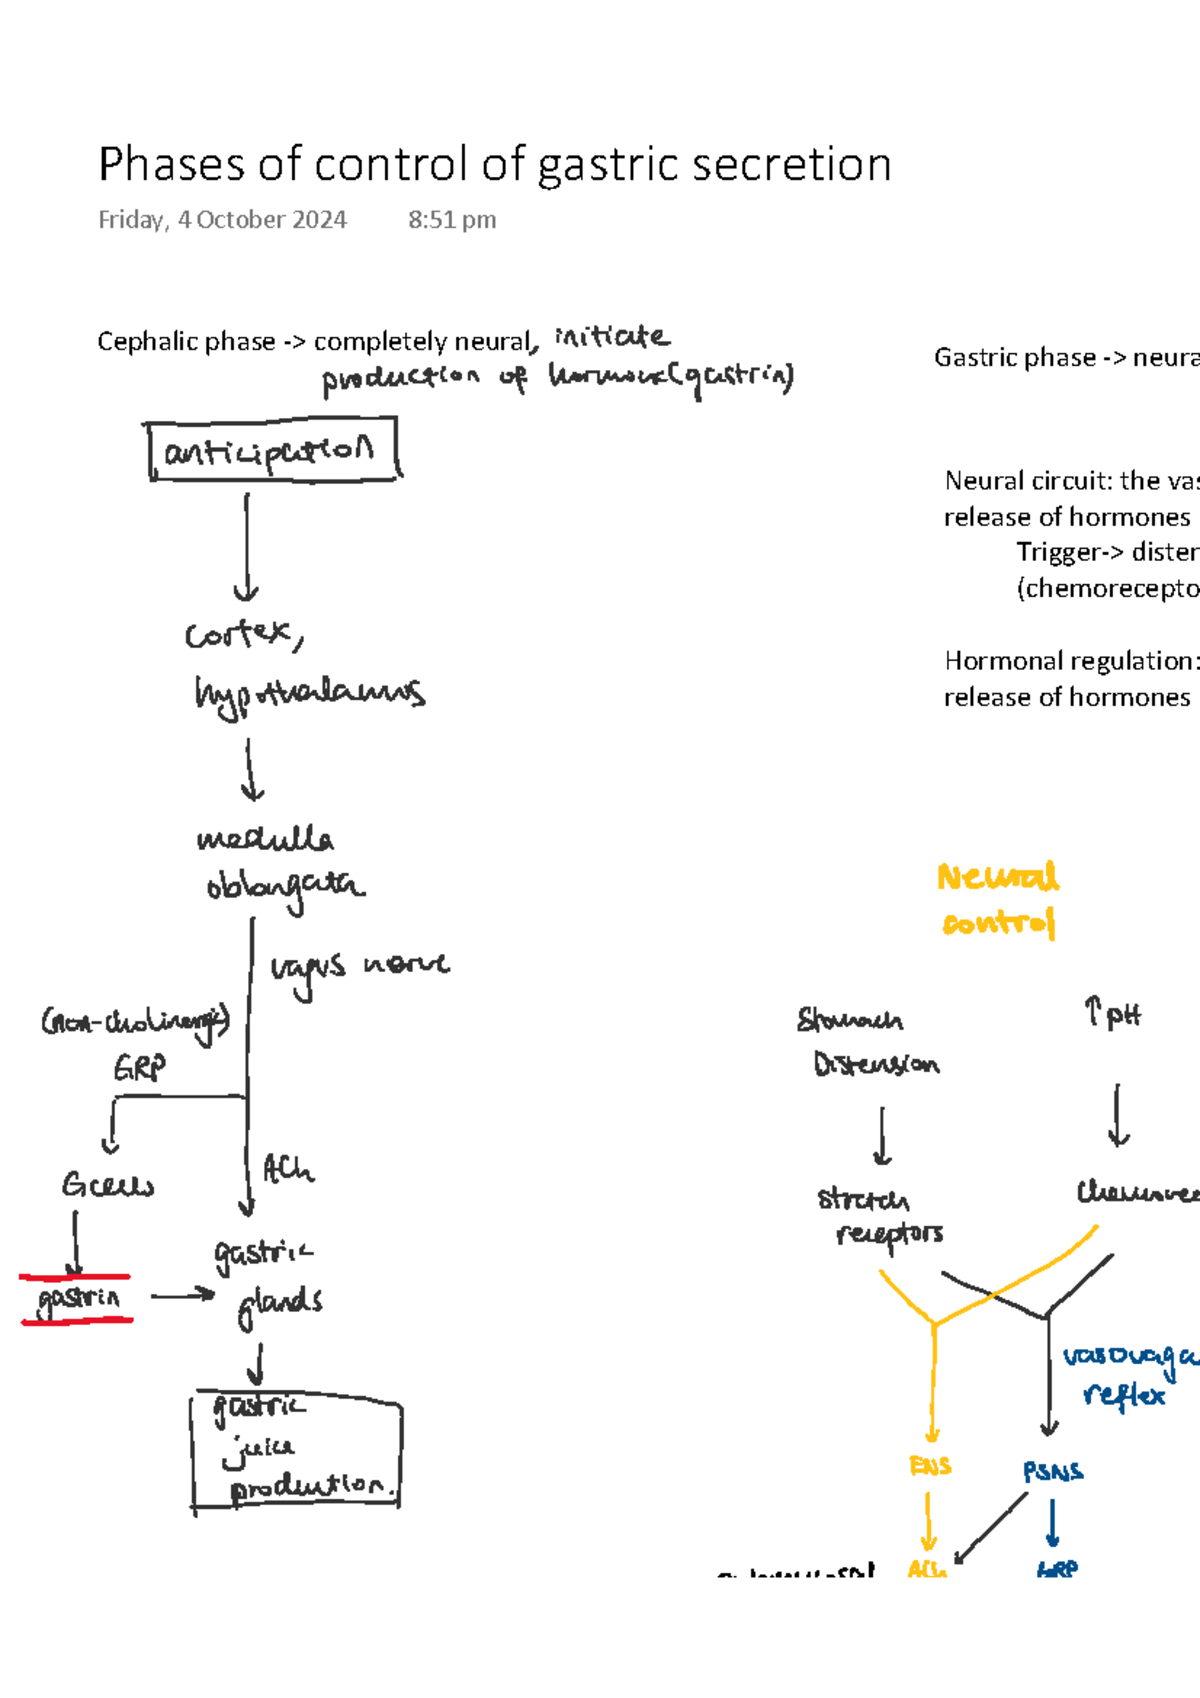 Phases of control of gastric secretion
Friday, 4 October 2024 8:51 pm
Cephalic phase -> completely neural, initiate
production of hormone(gastrin)
anticipation
cortex,
hypothalamus
medulla
oblongata
vagus nerve
(non-cholinergic)
GRP
ACh
G cells
gastrin
gastric
glands
gastric
juice
production.
Gastric phase -> neura
Neural circuit: the vas
release of hormones
Trigger-> disten
(chemorecepto
Hormonal regulation:
release of hormones
Neural
control
Stomach
Distension
↑pH
stretch
receptors
chemorec
vasovaga
reflex
ENS
PSNS
ACh
GRP